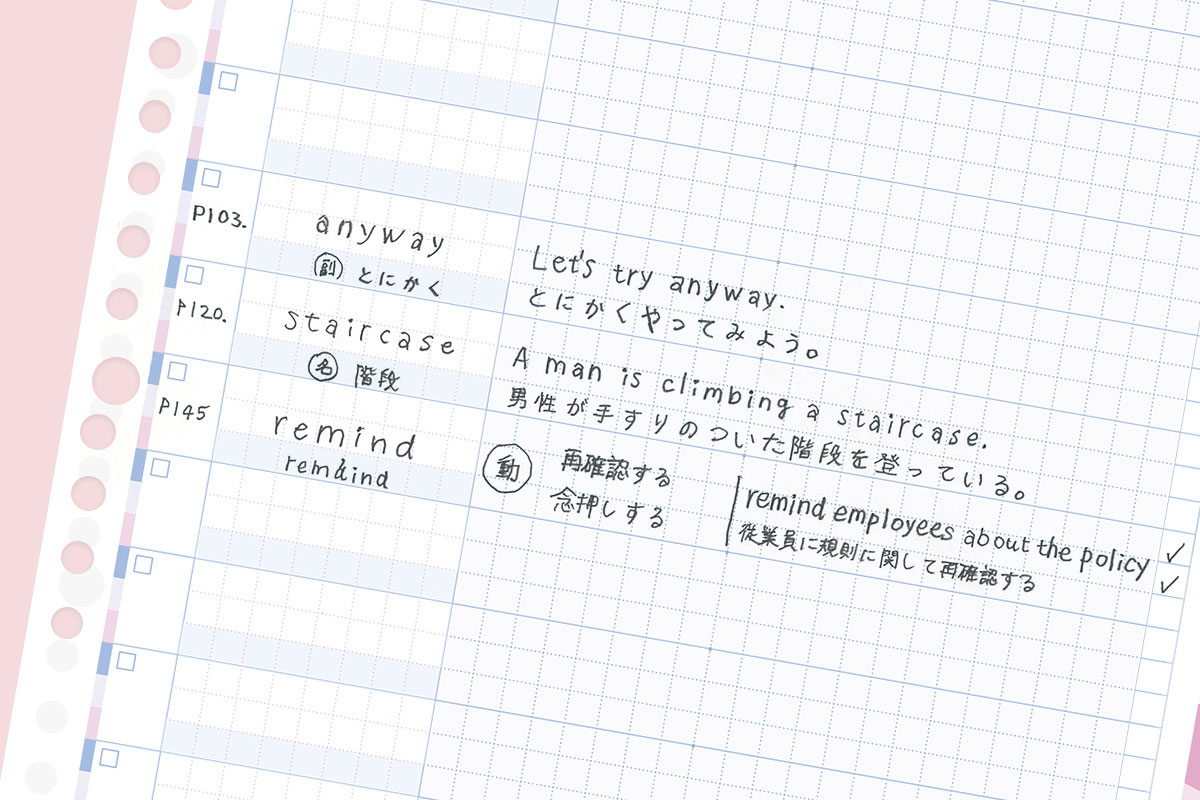 P103.
anyway
副 とにかく
Let's try anyway.
とにかくやってみよう。
P120.
staircase
名 階段
A man is climbing a staircase.
男性が手すりのついた階段を登っている。
P145
remind
動
再確認する
念押しする
remind employees about the policy
従業員に規則に関して再確認する